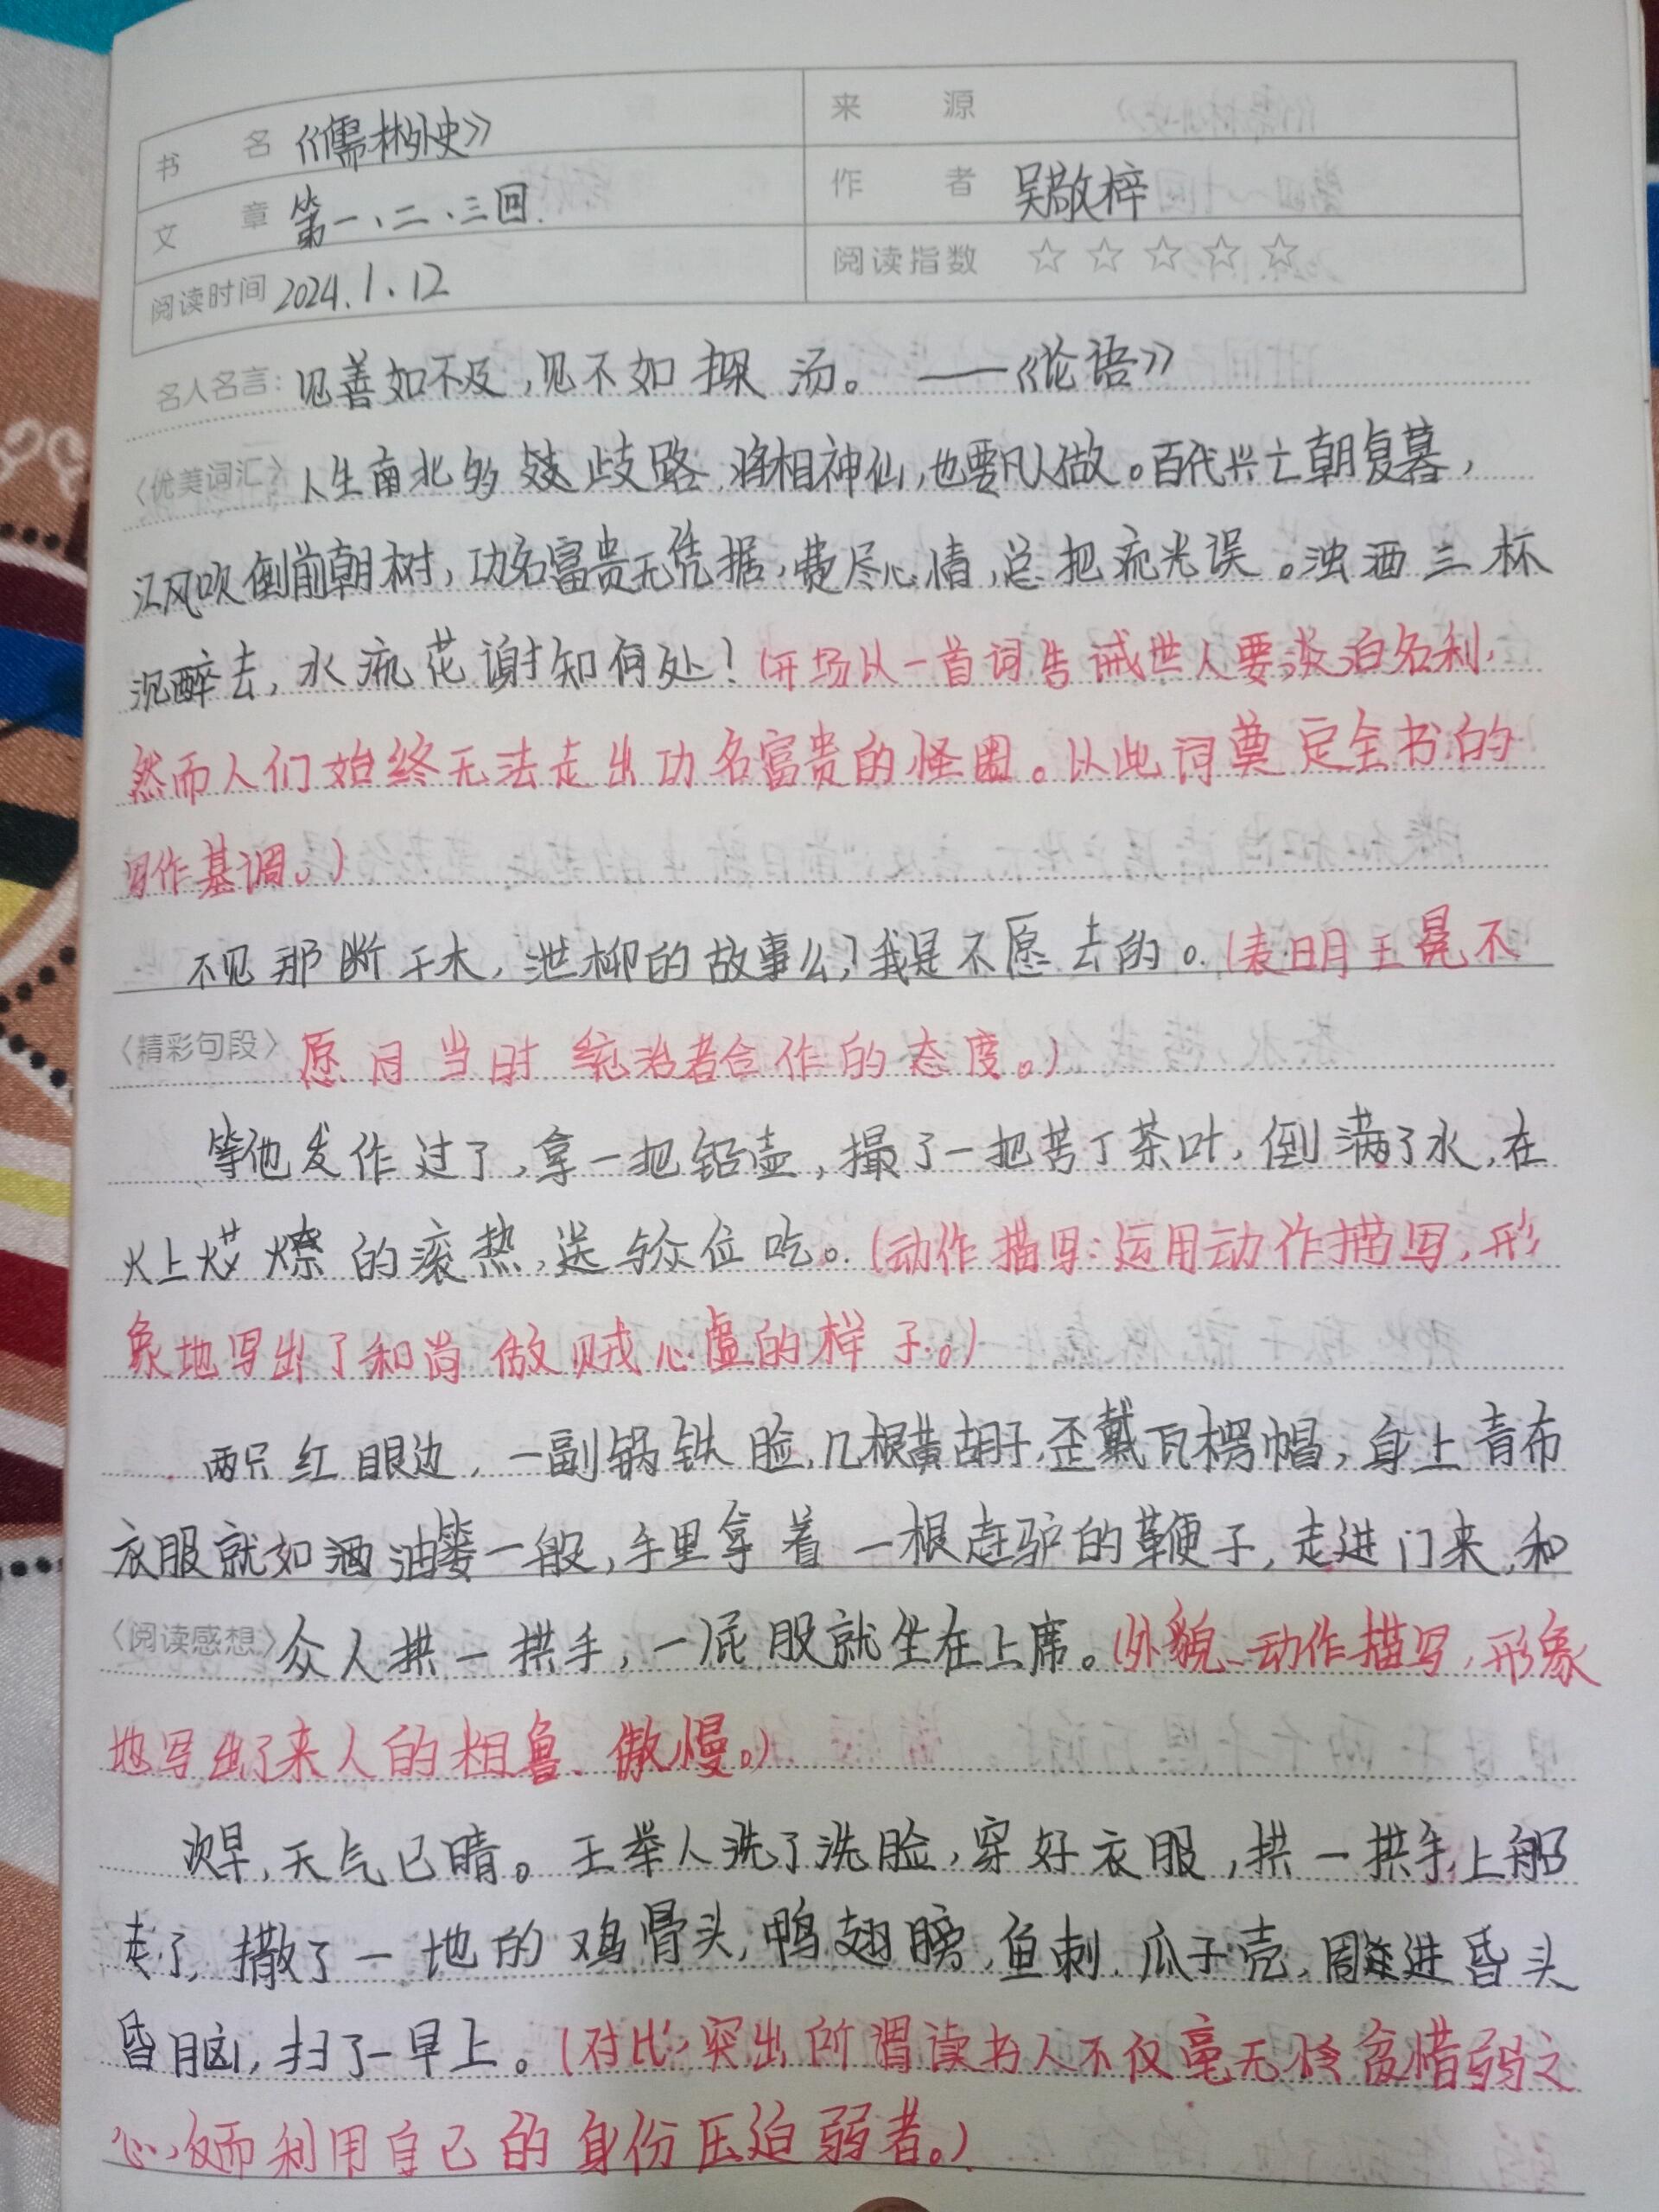 书 名 《儒林外史》 来 源
文 章 第一、二、三回. 作 者 吴敬梓
阅读时间 2024.1.12 阅读指数 ☆ ☆ ☆ ☆ ☆
名人名言: 见善如不及,见不如探汤。 ——《论语》
〈优美词汇〉 人生南北多歧路,将相神仙,也要凡人做。百代兴亡朝复暮,
江风吹倒前朝树,功名富贵无凭据,费尽心情,总把流光误。浊酒三杯
沉醉去,水流花谢知何处!(开场以一首词告诫世人要淡泊名利,
然而人们始终无法走出功名富贵的怪圈。以此词奠定全书的
写作基调。)
不见那断干木,泄柳的故事么?我是不愿去的。(表明王冕不
〈精彩句段〉 愿同当时统治者合作的态度。)
等他发作过了,拿一把铅壶,撮了一把苦丁茶叶,倒满了水,在
火上燎的滚热,送与众位吃。(动作描写:运用动作描写,形
象地写出了和尚做贼心虚的样子。)
两只红眼边,一副锅铁脸,几根黄胡子,歪戴瓦楞帽,身上青布
衣服就如酒油篓一般,手里拿着一根赶驴的鞭子,走进门来,和
〈阅读感想〉 众人拱一拱手,一屁股就坐在上席。(外貌、动作描写,形象
地写出了来人的粗鲁、傲慢。)
次早,天气已晴。王举人洗了洗脸,穿好衣服,拱一拱手,上船
走了,撒了一地的鸡骨头,鸭翅膀,鱼刺,瓜子壳,周进昏头
昏脑,扫了一早上。(对比,突出所谓读书人不仅毫无怜贫惜弱之
心,反而利用自己的身份压迫弱者。)